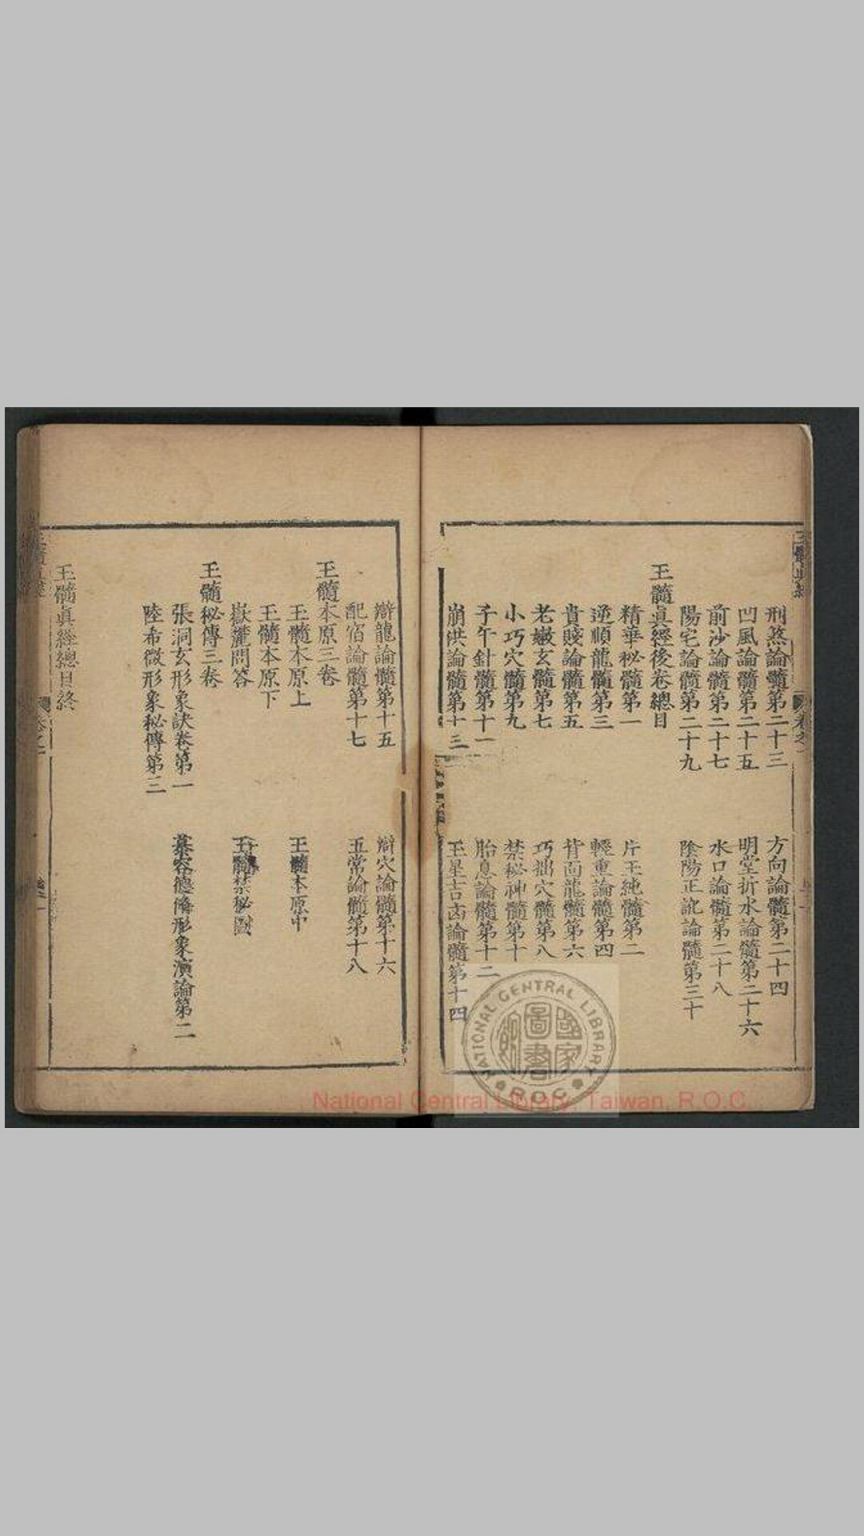 刑煞論髓第二十三　方向論髓第二十四
凹風論髓第二十五　明堂折水論髓第二十六
前沙論髓第二十七　水口論髓第二十八
陽宅論髓第二十九　陰陽正訛論髓第三十
玉髓真經後卷總目
精華秘髓第一　片玉純髓第二
逆順龍髓第三　輕重論髓第四
貴賤論髓第五　背面龍髓第六
老嫩玄髓第七　巧拙穴髓第八
小巧穴髓第九　禁秘神髓第十
子午針髓第十一　胎息論髓第十二
崩洪論髓第十三　玉星吉凶論髓第十四
辯龍論髓第十五　辯穴論髓第十六
配宿論髓第十七　五常論髓第十八
玉髓本原三卷
玉髓本原上　玉髓本原中
玉髓本原下
嶽麓問答　玉髓禁秘圖
玉髓秘傳三卷
張洞玄形象訣卷第一　慕容德脩形象演論第二
陸希微形象秘傳第三
玉髓真經總目終
NATIONAL CENTRAL LIBRARY
R.O.C
國家圖書館
National Central Library, Taiwan, R.O.C